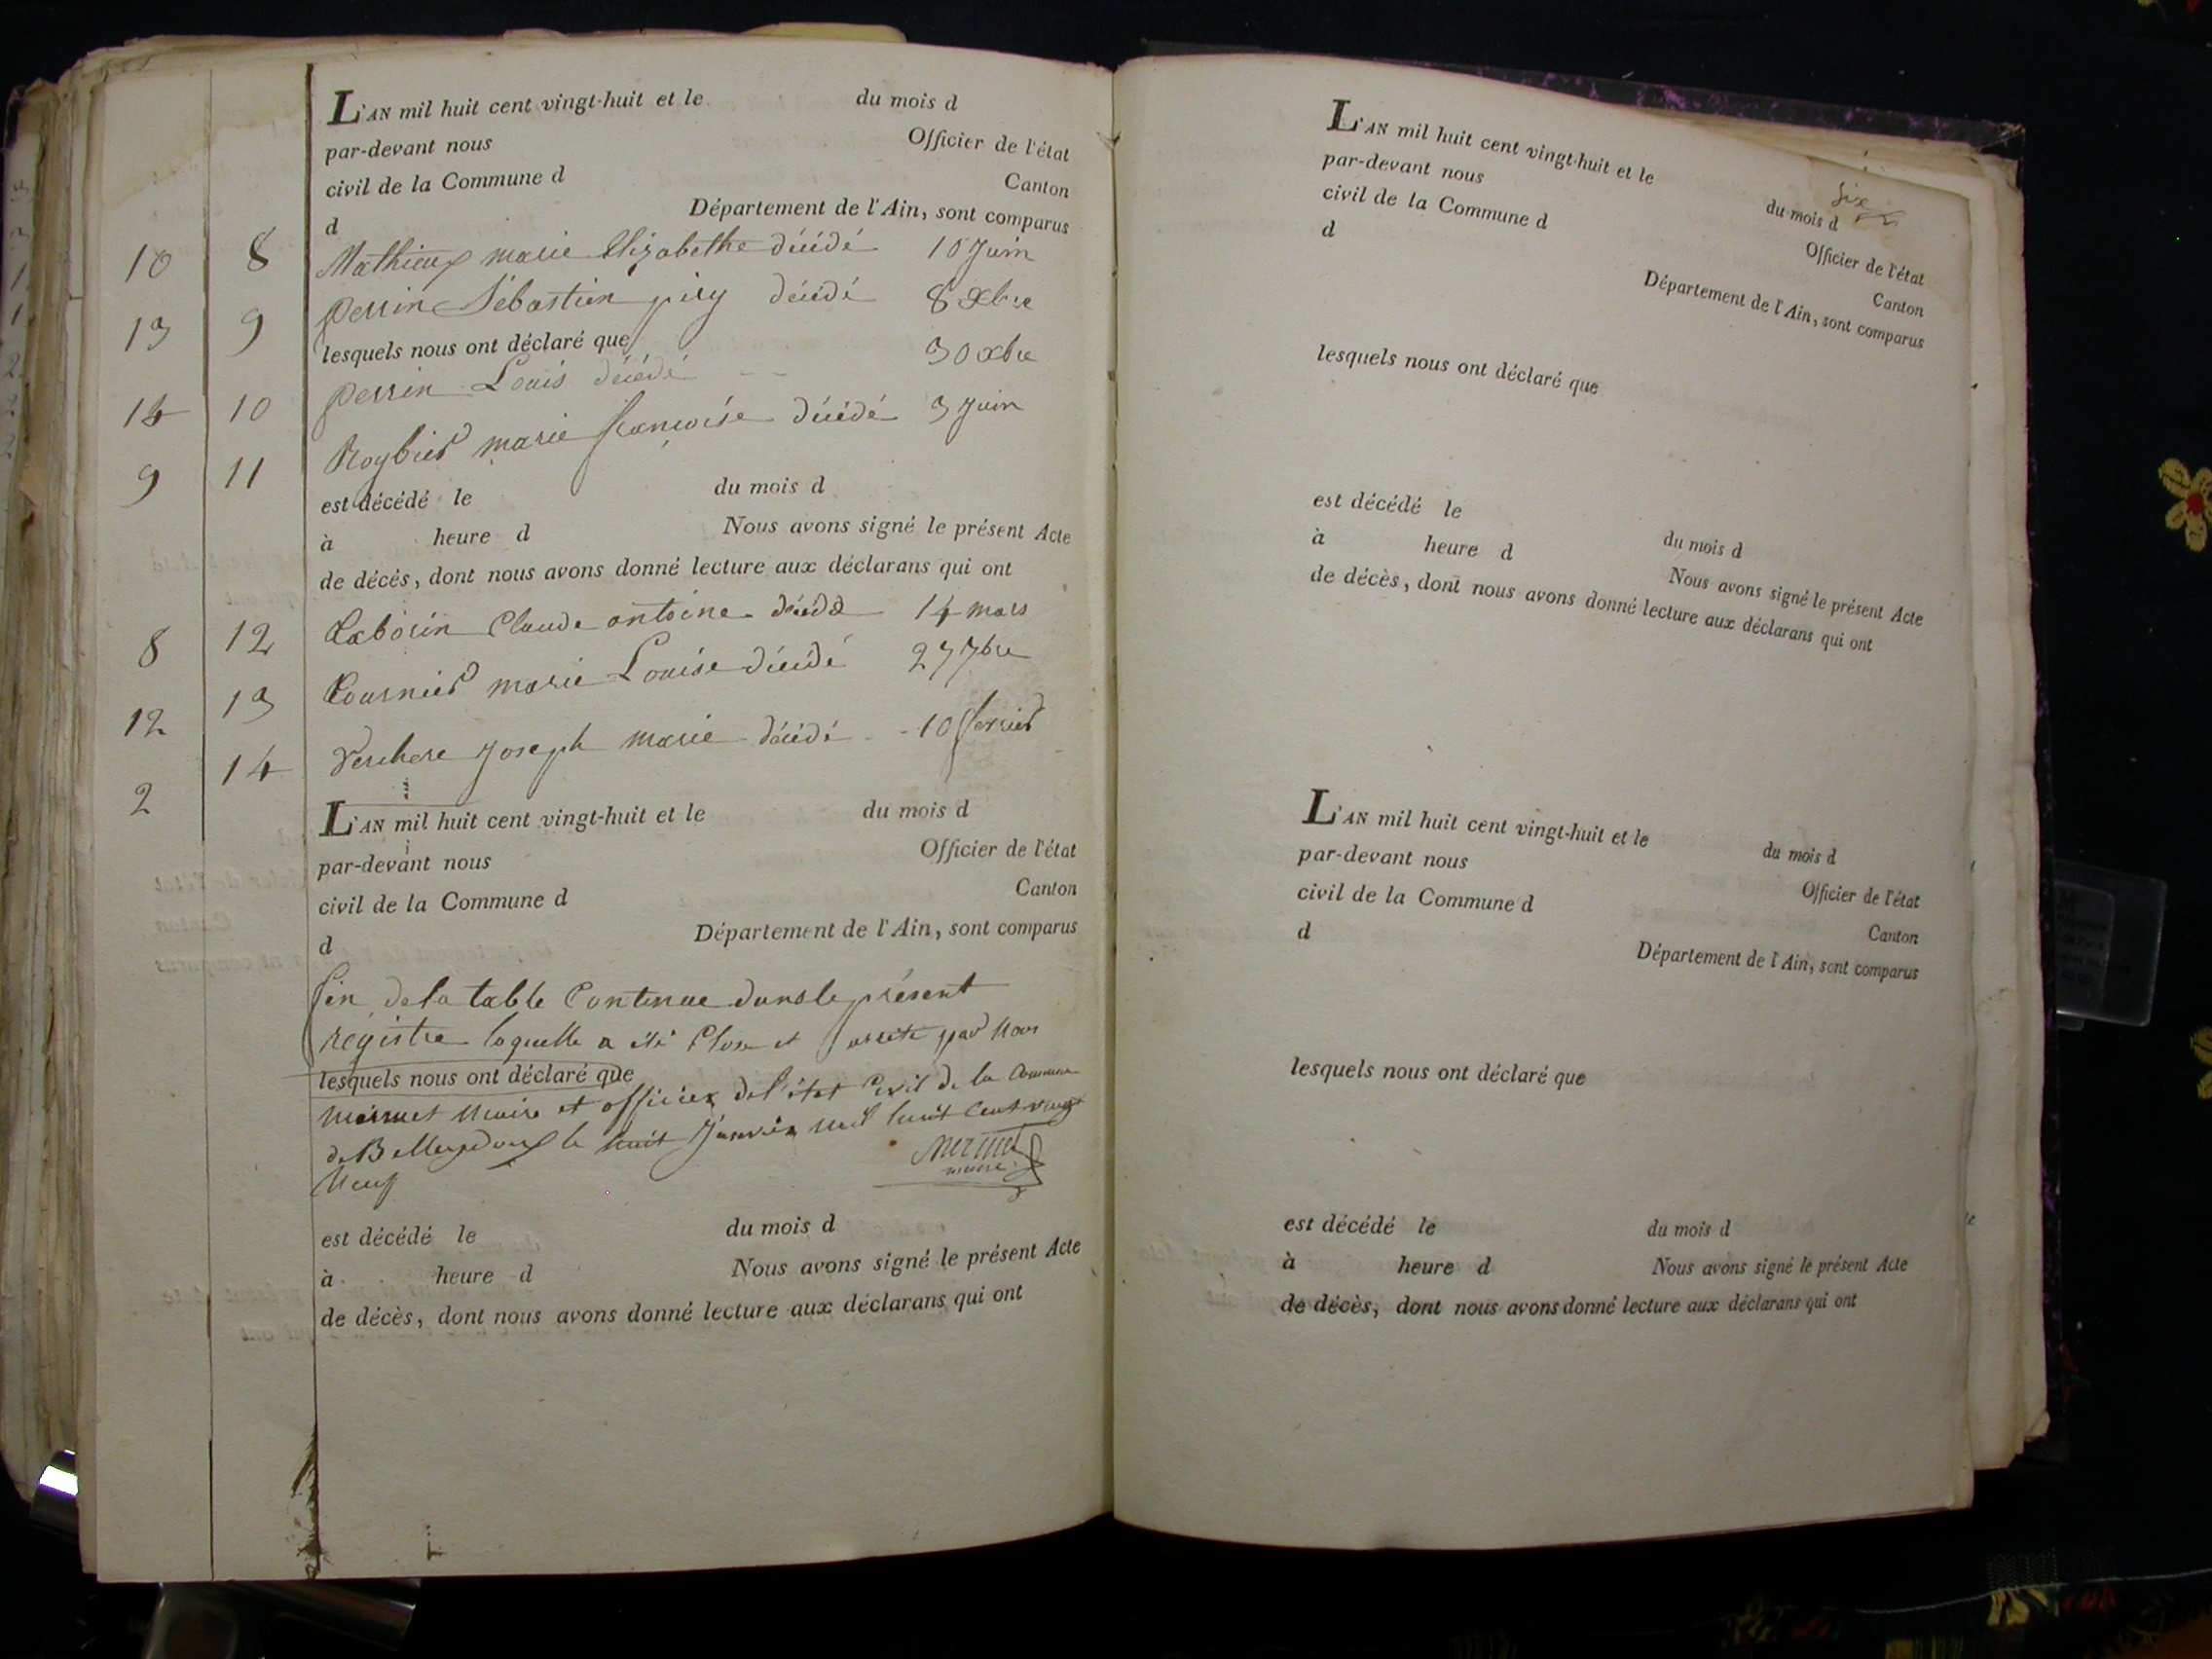 L'AN mil huit cent vingt-huit et le du mois d
par-devant nous Officier de l'état
civil de la Commune d Canton
d Département de l'Ain, sont comparus
10 8 Mathieux marie Elizabethe décédé 10 Juin
13 9 perrin Sébastien décédé 8 xbre
lesquels nous ont déclaré que
14 10 perrin Louis décédé -- 30 xbre
9 11 Roybier marie françoise décédé 3 Juin
est décédé le du mois d
à heure d Nous avons signé le présent Acte
de décès, dont nous avons donné lecture aux déclarans qui ont
8 12 Claude antoine décédé 14 mars
12 13 marie Louise décédé 27 7bre
2 14 Verchere Joseph marie décédé 10 fevrier
L'AN mil huit cent vingt-huit et le du mois d
par-devant nous Officier de l'état
civil de la Commune d Canton
d Département de l'Ain, sont comparus
fin de la table Contenue dans le présent
registre laquelle a été Close et arreté par Nous
lesquels nous ont déclaré que
mermet Maire et officier de l'état Civil de la Commune
de Belleydoux le huit Janvier mil huit Cent vingt
Neuf mermet
maire
est décédé le du mois d
à heure d Nous avons signé le présent Acte
de décès, dont nous avons donné lecture aux déclarans qui ont
six
L'AN mil huit cent vingt-huit et le du mois d
par-devant nous Officier de l'état
civil de la Commune d Canton
d Département de l'Ain, sont comparus
lesquels nous ont déclaré que
est décédé le du mois d
à heure d Nous avons signé le présent Acte
de décès, dont nous avons donné lecture aux déclarans qui ont
L'AN mil huit cent vingt-huit et le du mois d
par-devant nous Officier de l'état
civil de la Commune d Canton
d Département de l'Ain, sont comparus
lesquels nous ont déclaré que
est décédé le du mois d
à heure d Nous avons signé le présent Acte
de décès, dont nous avons donné lecture aux déclarans qui ont